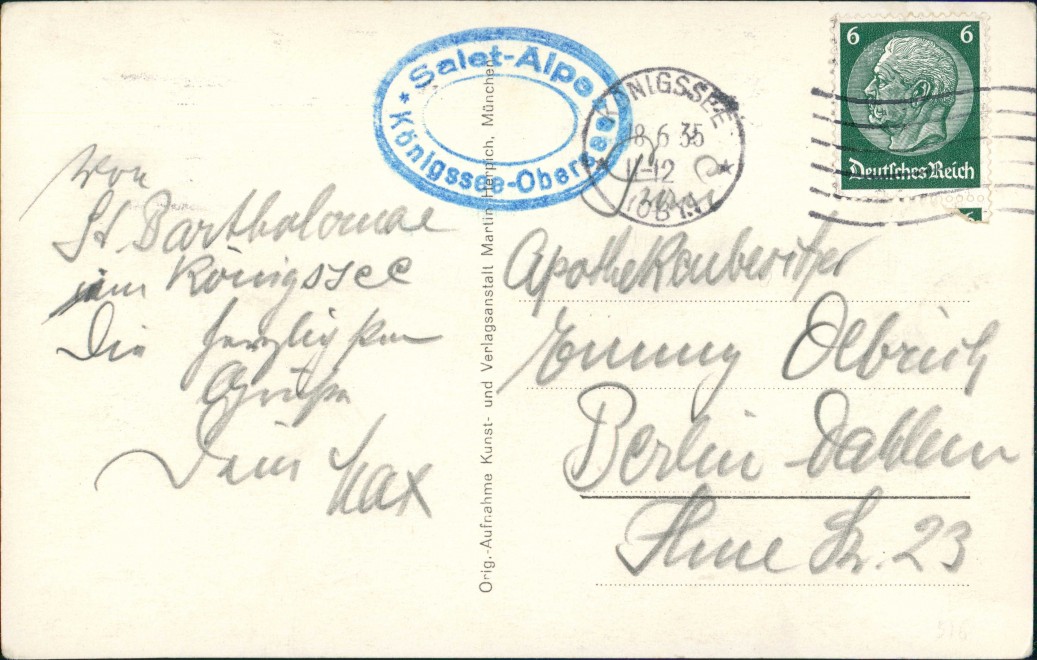 Von
St Bartholomae
am Königssee
Die herzlichsten
Grüße
Dein Max
Salet-Alpe
* Königssee-Obersee *
Orig.-Aufnahme Kunst- und Verlagsanstalt Martin Herpich, München
KÖNIGSSEE
18 6 35
11-12
6
6
Deutsches Reich
Apothekenbesitzer
Emmy Olbrich
Berlin Dahlem
Ihne Str. 23
516